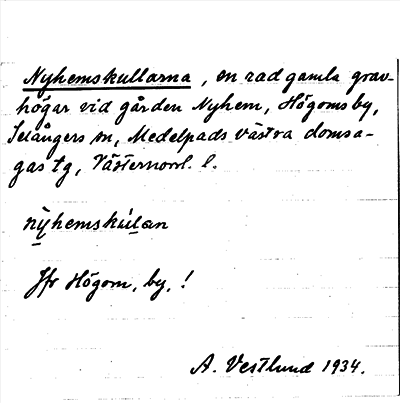 Nyhemskullarna, en rad gamla grav-
högar vid gården Nyhem, Högoms by,
Selångers sn, Medelpads västra domsa-
gas tg, Västernorrl. l.
nỳhemskúlan
Jfr Högom, by, !
A. Vestlund 1934.